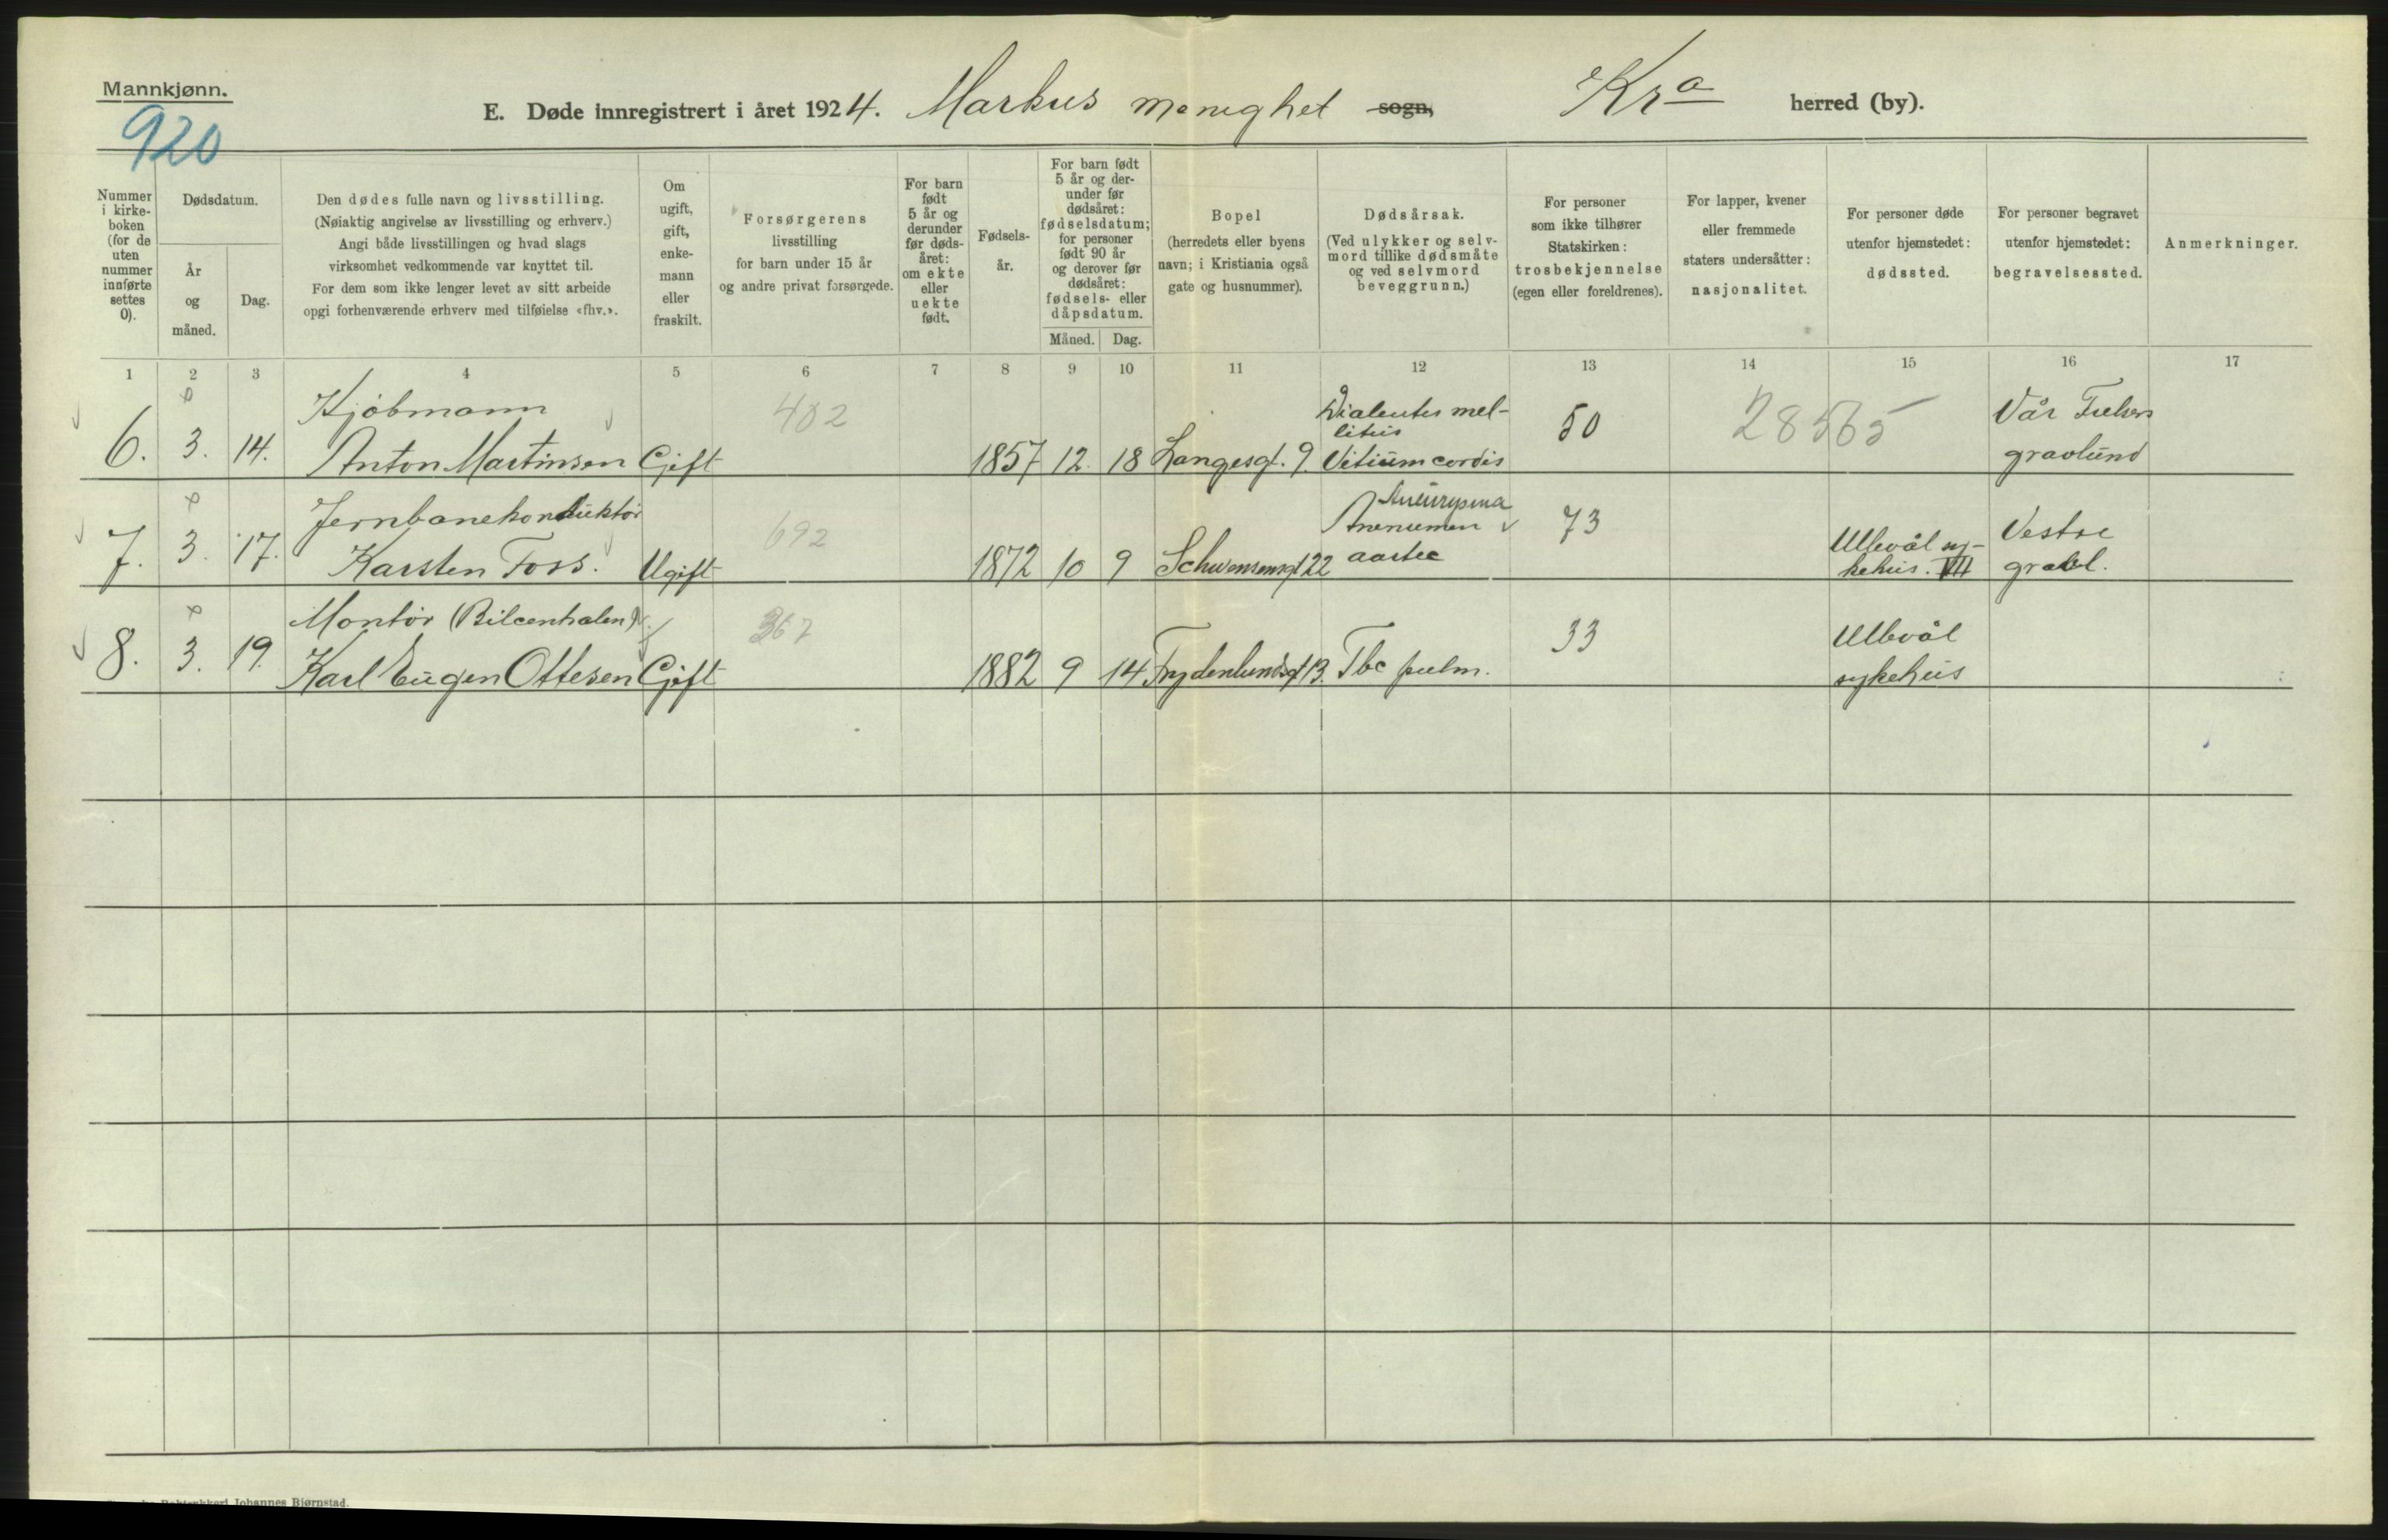 Mannkjønn.
920
E. Døde innregistrert i året 1924. Markus menighet sogn, Kra herred (by).
Nummer i kirke- boken (for de uten nummer innførte settes 0).
Dødsdatum.
År og måned.
Dag.
Den dødes fulle navn og livsstilling.
(Nøiaktig angivelse av livsstilling og erhverv.)
Angi både livsstillingen og hvad slags
virksomhet vedkommende var knyttet til.
For dem som ikke lenger levet av sitt arbeide
opgi forhenværende erhverv med tilføielse «fhv.».
Om ugift, gift, enke- mann eller fraskilt.
Forsørgerens
livsstilling
for barn under 15 år
og andre privat forsørgede.
For barn født 5 år og derunder før døds- året: om ekte eller uekte født.
Fødsels- år.
For barn født 5 år og der- under før dødsåret: fødselsdatum; for personer født 90 år og derover før dødsåret: fødsels- eller dåpsdatum.
Måned. Dag.
Bopel
(herredets eller byens
navn; i Kristiania også
gate og husnummer).
Dødsårsak.
(Ved ulykker og selv-
mord tillike dødsmåte
og ved selvmord
beveggrunn.)
For personer
som ikke tilhører
Statskirken:
trosbekjennelse
(egen eller foreldrenes).
For lapper, kvener
eller fremmede
staters undersåtter:
nasjonalitet.
For personer døde
utenfor hjemstedet:
dødssted.
For personer begravet
utenfor hjemstedet:
begravelsessted.
Anmerkninger.
1 2 3 4 5 6 7 8 9 10 11 12 13 14 15 16 17
Kjøbmann
6. 3. 14. Anton Martinsen Gift 402 1857 12. 18 Langesgt. 9.
Diabentes mel-
litus
Vitium cordis
50
28565
Vår Frelsers
gravlund
Jernbanekonduktør
7. 3. 17. Karsten Foss. Ugift 692 1872 10 9 Schwensensgt 22
Aneurysma
aortae
73
Ullevål sy-
kehus. VII
Vestre
gravl.
Montør (Bilcentralen)
8. 3. 19. Karl Eugen Ottesen Gift 367 1882 9 14 Frydenlundsgt 13. Tbc pulm.
33
Ullevål
sykehus
Johannes Bjørnstad.